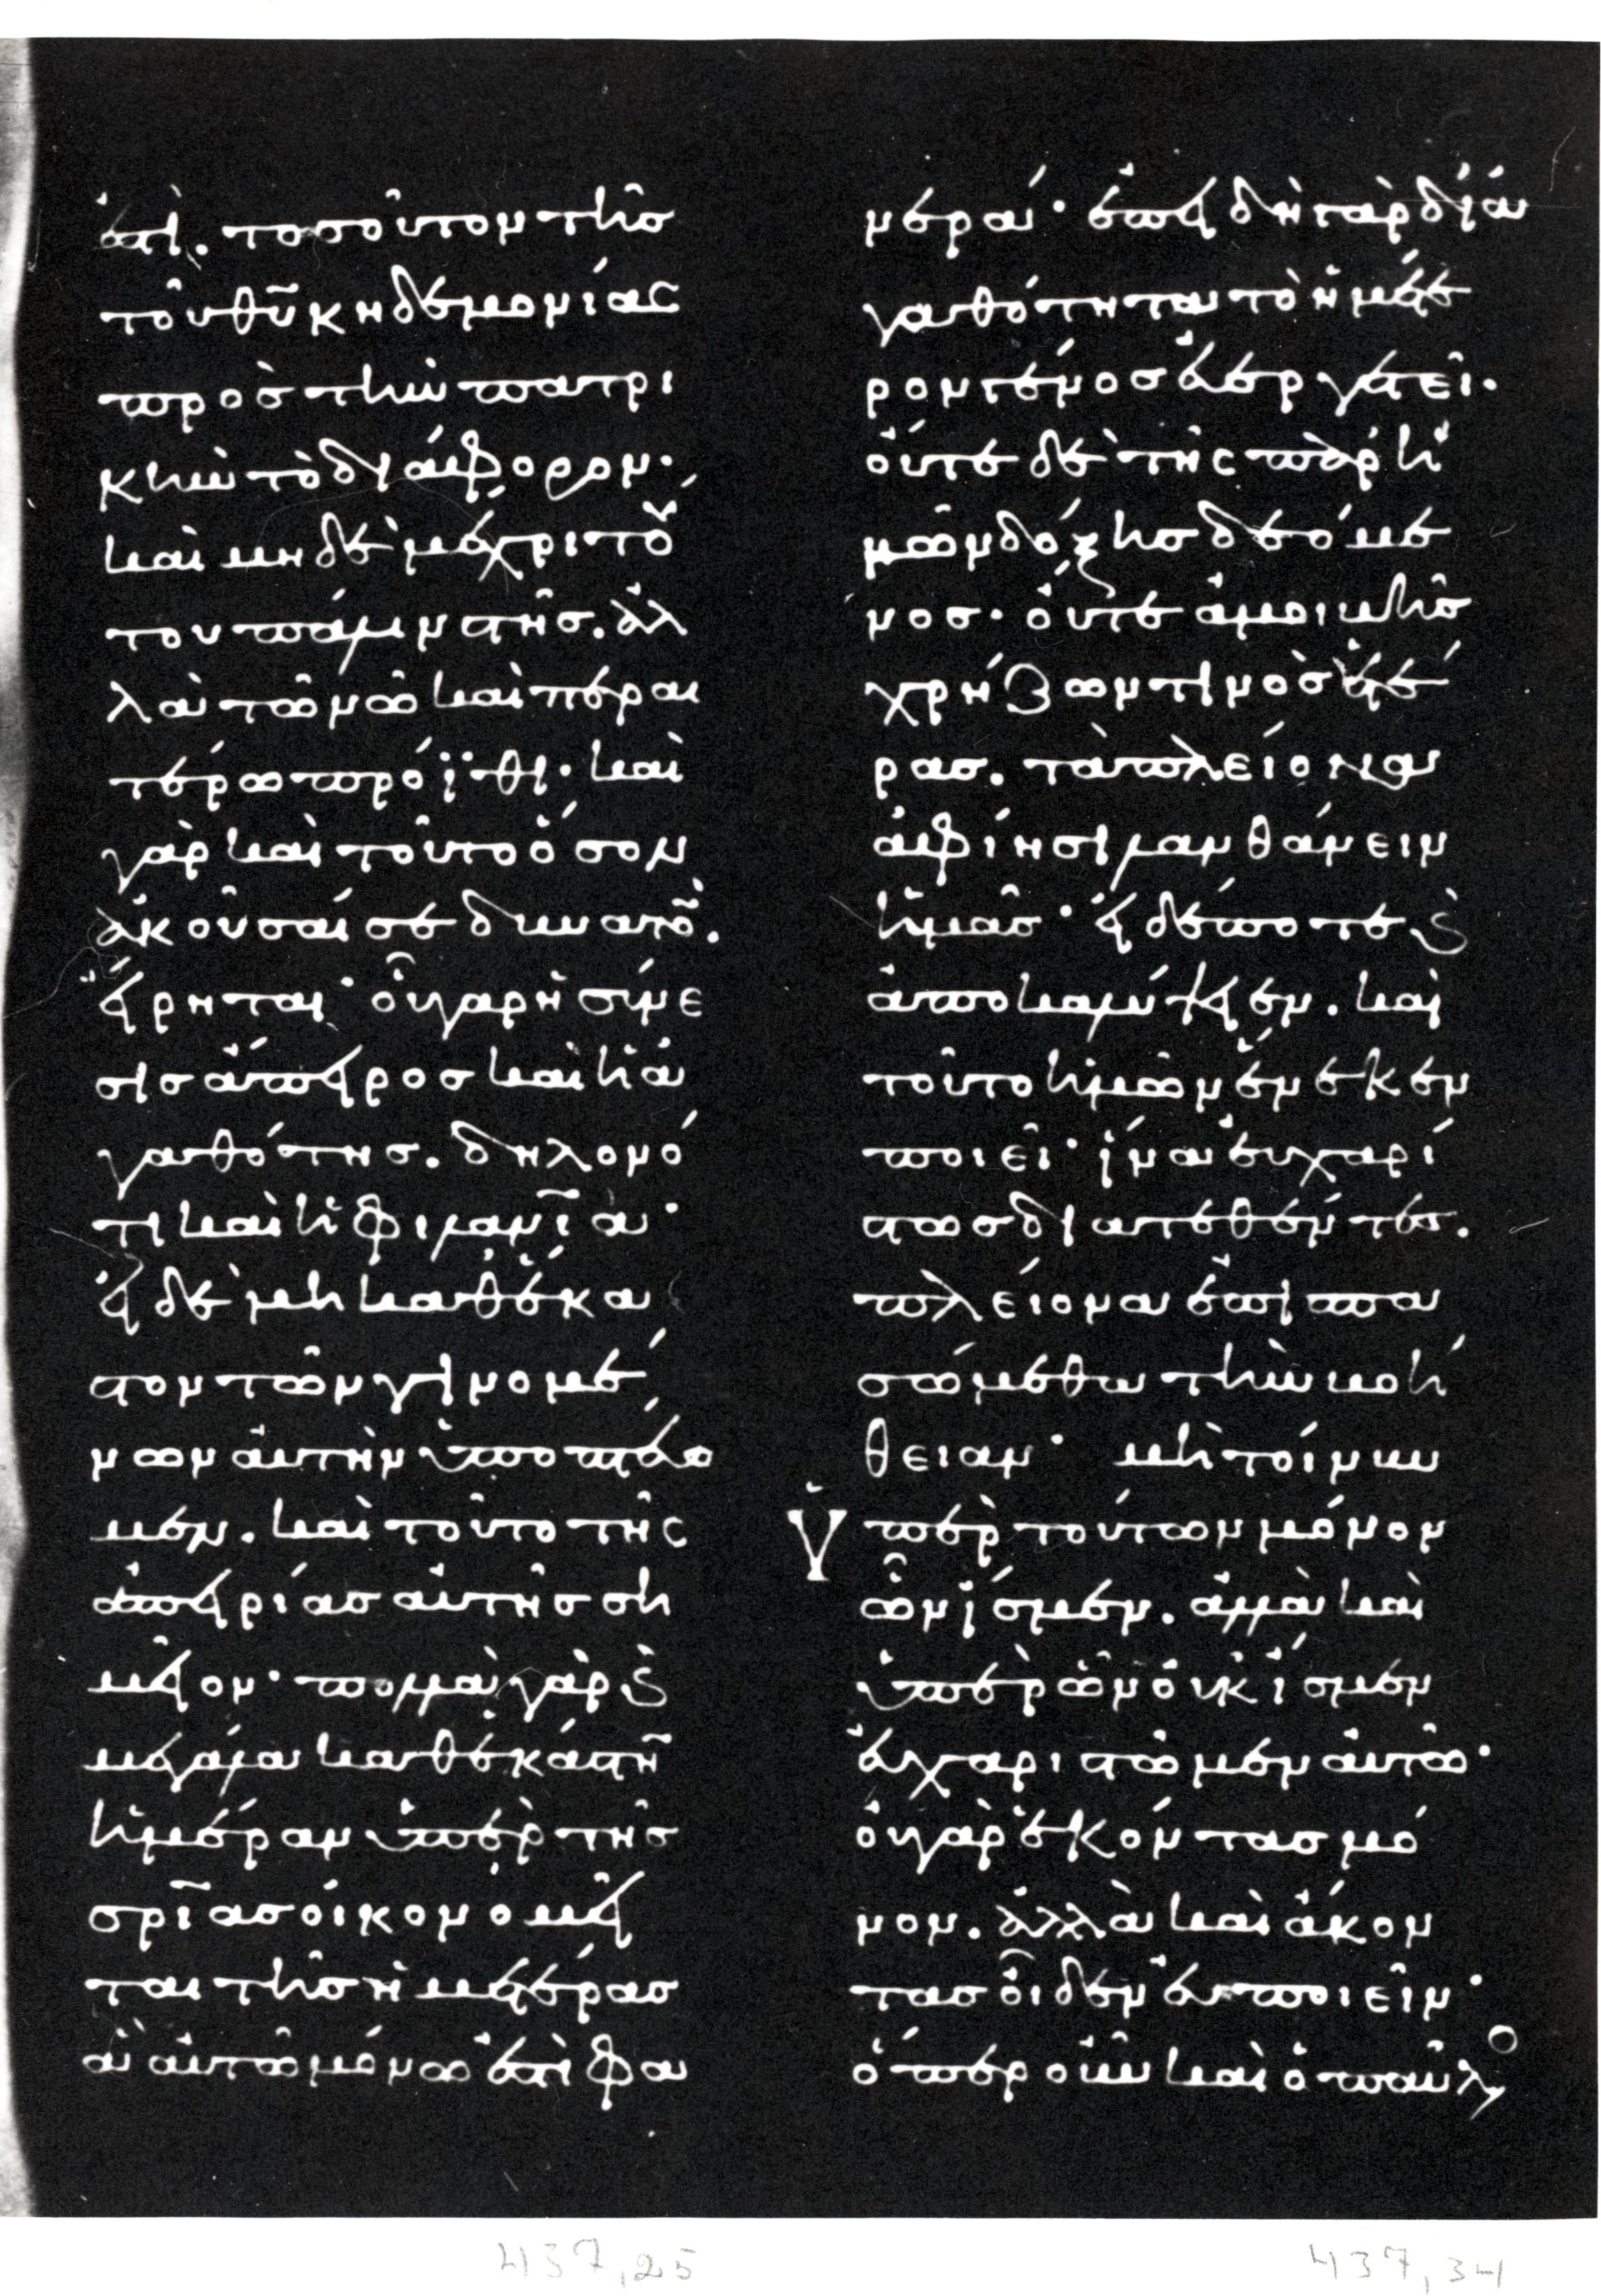 ἐστὶ. τοσοῦτον τῆσ
τοῦ θῦ κηδεμονίας
πρὸσ τὴν πατρι
κὴν τὸ διάφορον·
καὶ μηδὲ μέχρι τού
του πάλιν στῆσ. ἀλ
λὰ τῶ νῶ καὶ περαι
τέρω πρόϊθι· καὶ
γὰρ καὶ τοῦτο ὅσον
ἀκοῦσαί σε δυνατὸν.
εἴρηται· οὐ γαρ ἡ σύνε
σισ ἄπειροσ καὶ ἡ ἀ
γαθότησ. δηλονό
τι καὶ ἡ φιλανΐα·
εἰ δὲ μὴ καθ' ἕκα
στον τῶν γινομέ
νων αὐτὴν ὑποπτεύο
μεν. καὶ τοῦτο τῆς
ἀπειρίασ αὐτῆσ ση
μεῖον· πολλὰ γὰρ καὶ
μεγάλα καθ' ἑκάστην
ἡμέραν ὑπὲρ τῆσ
σρΐασ οἰκονομεῖ
ται τῆσ ἡμετέρασ
ἃ αὐτῶ μόνω ἐστὶ φα
νερά· ἐπειδὴ γὰρ δι' ἀ
γαθότητα τὸ ἡμέτε
ρον γένοσ εὐεργετεῖ.
οὔτε δὲ τῆς παρ' ἡ
μῶν δόξησ δεόμε
νοσ· οὔτε ἀμοιβῆσ
χρήζων τινὸσ ἑτέ
ρασ. τὰ πλείονα
ἀφίησι λανθάνειν
ἡμᾶσ· εἰ δέ ποτε καὶ
ἀποκαλύπτει εν. καὶ
τοῦτο ἡμῶν ἕνεκεν
ποιεῖ· ἵνα εὐχαρί
στωσ διατεθέντεσ.
πλείονα ἐπισπα
σώμεθα τὴν βοή
θειαν· μὴ τοίνυν
ὑπὲρ τούτων μόνον
ὧν ἴσμεν. ἀλλὰ καὶ
ὑπὲρ ὧν οὐκ ἴσμεν
εὐχαριστῶμεν αὐτῶ·
οὐ γὰρ ἑκόντασ μό
νον. ἀλλὰ καὶ ἄκον
τασ οἶδεν εὖ ποιεῖν·
ὅπερ οὖν καὶ ὁ παῦλο
437,25 437,34